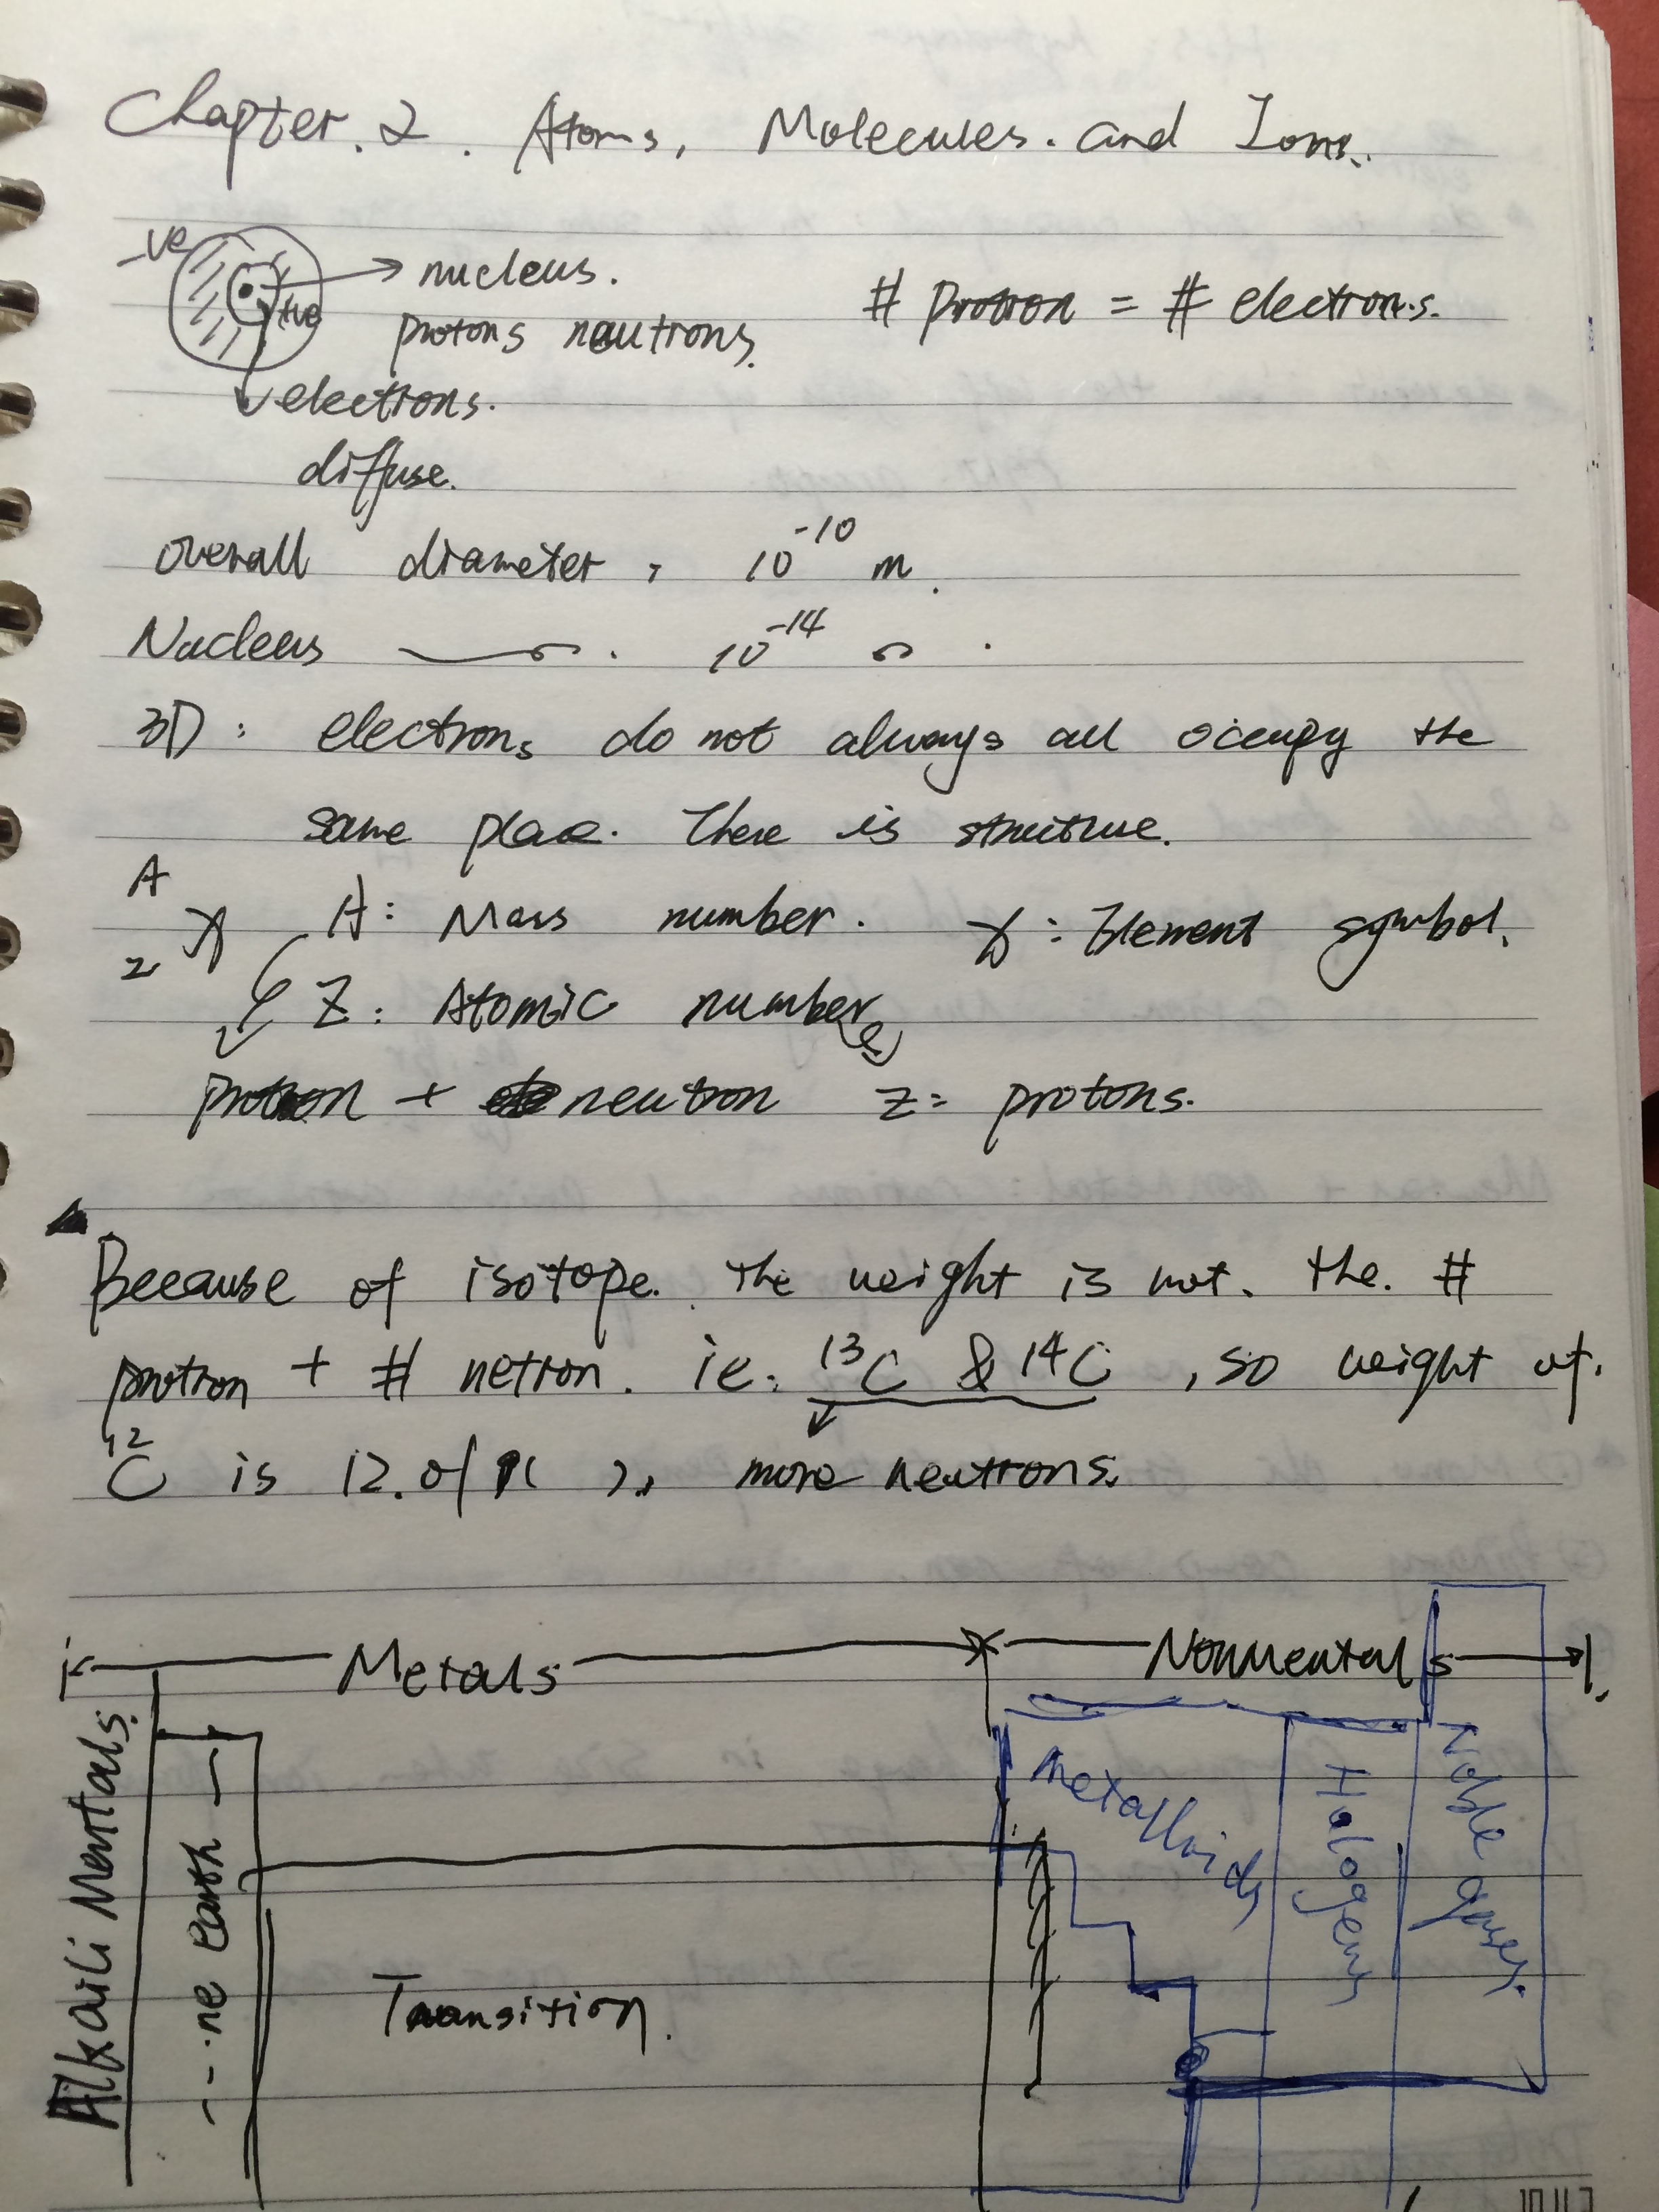 Chapter. 2. Atoms, Molecules. and Ions.
-ve
nucleus.
+ve
protons neutrons.
# proton = # electrons.
electrons.
diffuse.
overall diameter, 10^-10 m.
Nucleus 10^-14
3D: electrons do not always all occupy the
same place. There is structure.
A
Z X A: Mass number. X: Element symbol.
Z: Atomic number
proton + neutron Z = protons.
Because of isotope. The weight is not. the. #
protron + # netron. ie. 13C & 14C, so weight of.
12C is 12.01 more neutrons.
Metals Nonmentals
Alkaili Mentals.
---ne earth
Transition.
Metalloids
Halogens
Noble gases.